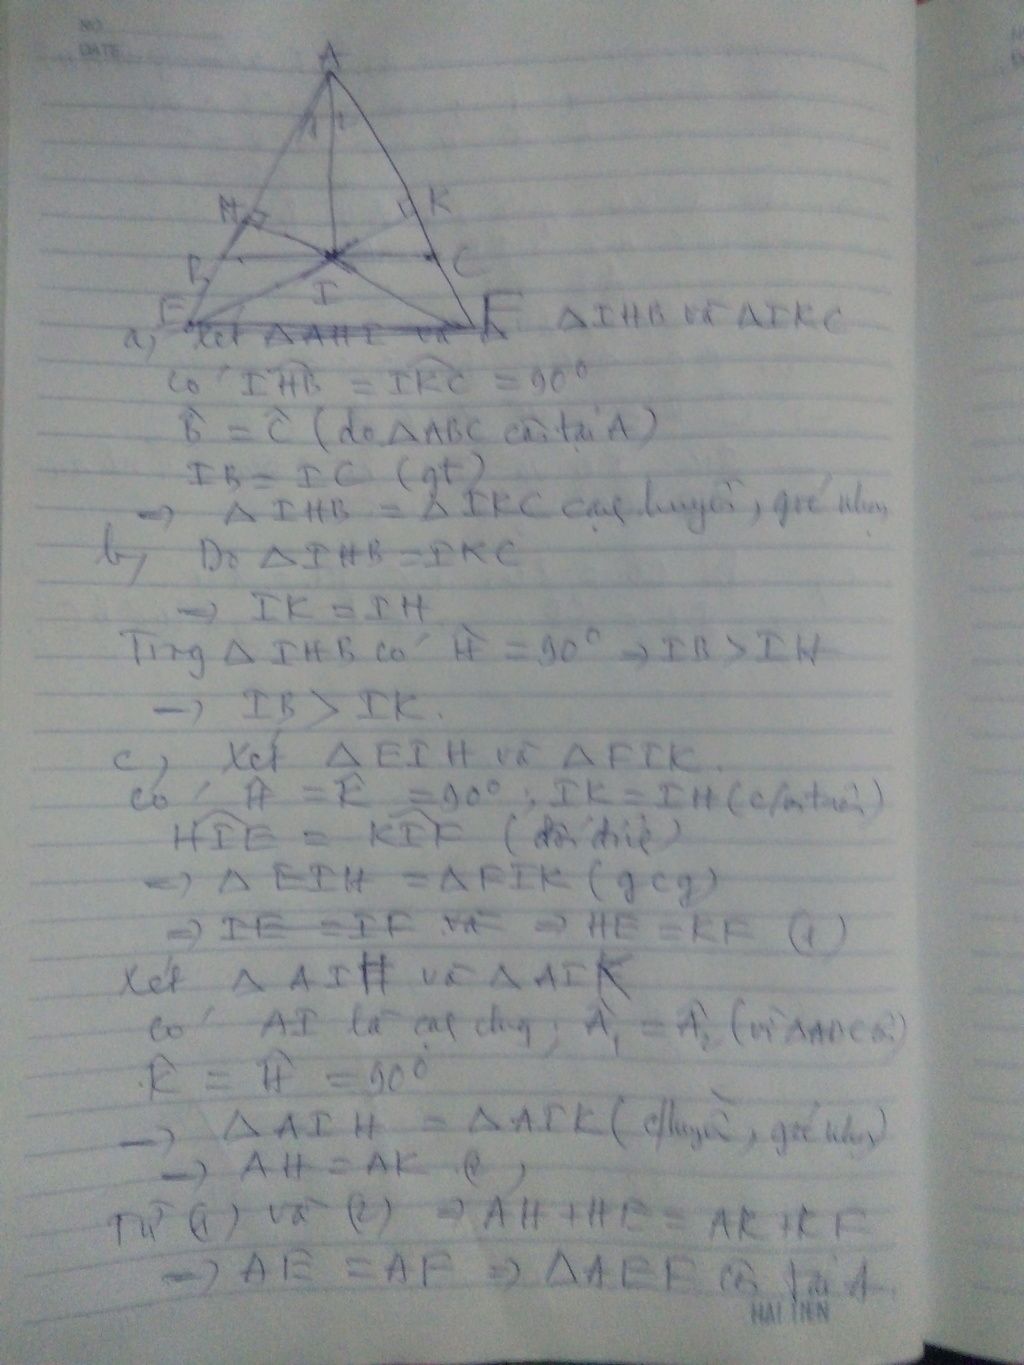 NO
DATE
A
1 2
H
K
B
C
I
E
F
a) Xét ΔAHI và ΔIHB và ΔIKC
có IHB = IKC = 90°
B̂ = Ĉ (do ΔABC cân tại A)
IB = IC (gt)
=> ΔIHB = ΔIKC cạnh huyền, góc nhọn
b, Do ΔIHB = IKC
=> IK = IH
Trong ΔIHB có Ĥ = 90° => IB > IH
=> IB > IK.
c, Xét ΔEIH và ΔFIK.
có Ĥ = K̂ = 90° ; IK = IH (c/m trên)
HIE = KIF (đối đỉnh)
=> ΔEIH = ΔFIK (gcg)
=> IE = IF và => HE = KF (1)
Xét ΔAIH và ΔAIK
có AI là cạnh chung, Â₁ = Â₂ (vì ΔABC cân)
K̂ = Ĥ = 90°
=> ΔAIH = ΔAIK (c/huyền, góc nhọn)
=> AH = AK (2)
Từ (1) và (2) => AH + HE = AK + KF
=> AE = AF => ΔAEF cân tại A.
HAI TIEN